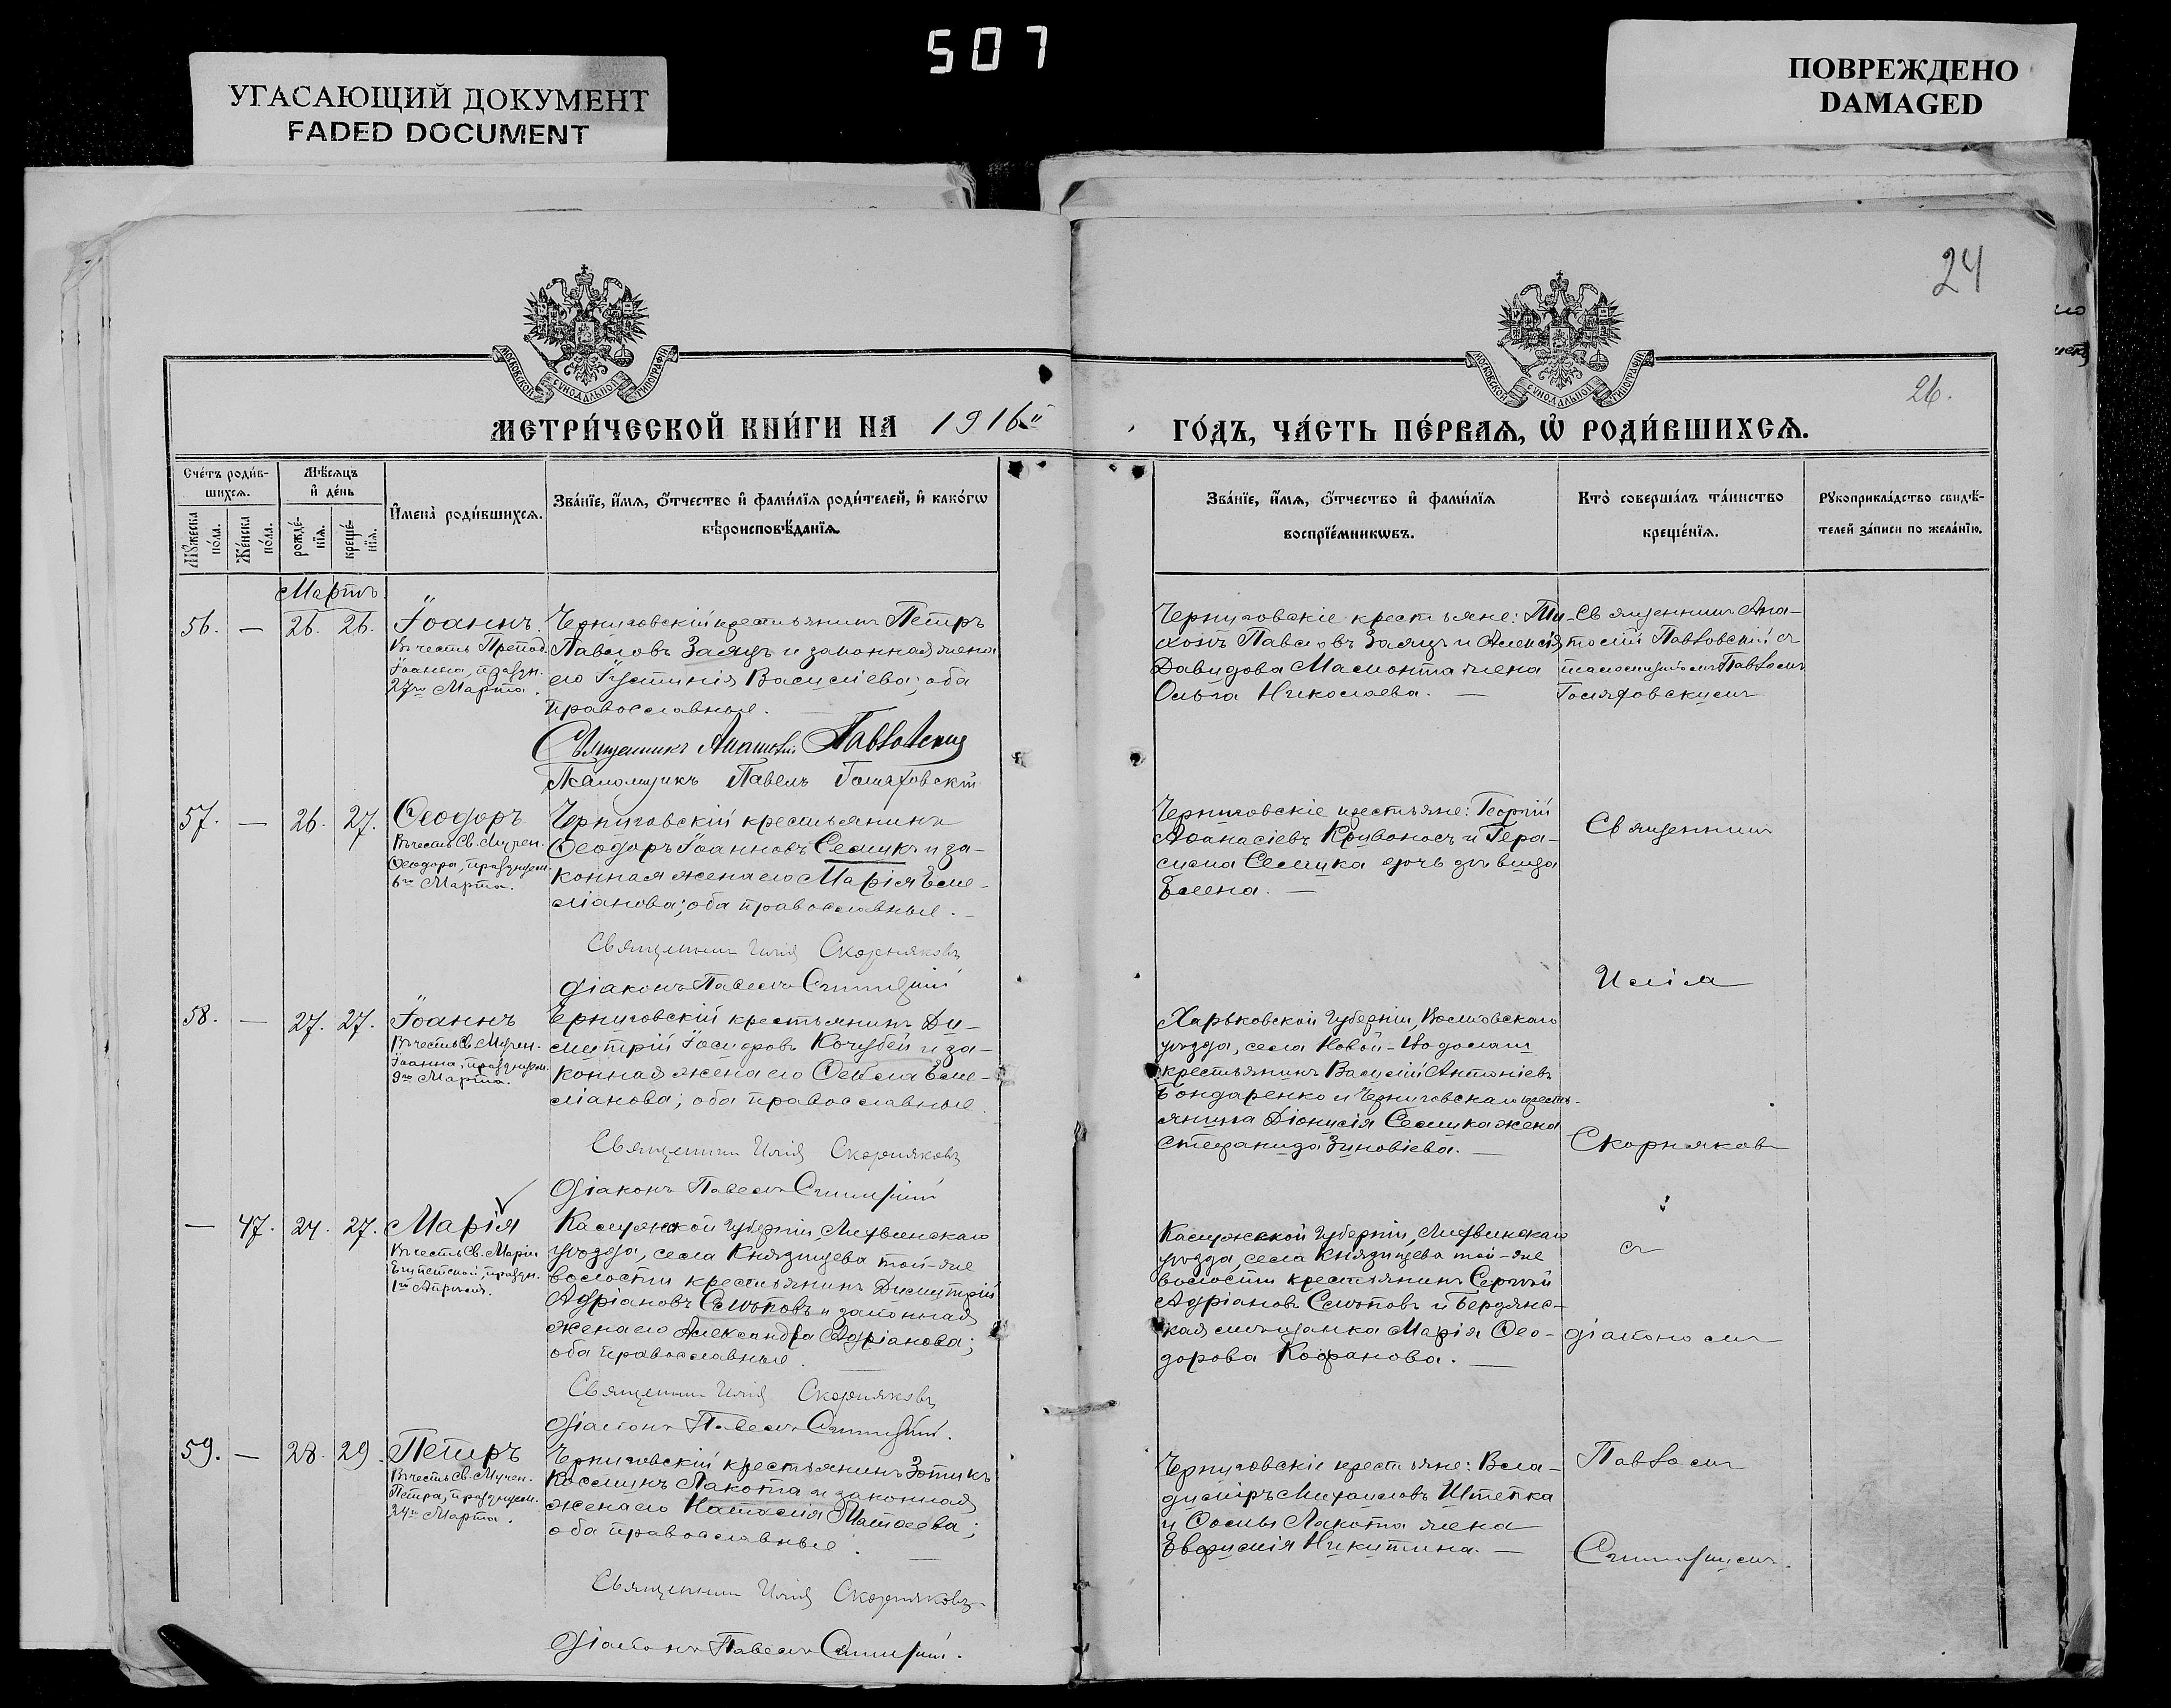 507
УГАСАЮЩИЙ ДОКУМЕНТ
FADED DOCUMENT
ПОВРЕЖДЕНО
DAMAGED
24
26.
МОСКОВСКОЙ СѴНОДАЛЬНОЙ ТИПОГРАФІИ
МОСКОВСКОЙ СѴНОДАЛЬНОЙ ТИПОГРАФІИ
МЕТРИ́ЧЕСКОЙ КНИ́ГИ НА 1916й
ГО́ДЪ, ЧА́СТЬ ПЕ́РВАѦ, Ѡ҆ РОДИ́ВШИХСѦ.
Сче́тъ роди́в-
шихсѧ.
Мꙋ́жеска по́ла.
Же́нска по́ла.
Мѣ́сѧцъ
и҆ де́нь
рожде́-
нїѧ.
креще́-
нїѧ.
И҆мена̀ роди́вшихсѧ.
Зва́нїе, и҆́мѧ, ѻ҆́тчество и҆ фами́лїѧ роди́телей, и҆ како́гѡ
вѣроисповѣ́данїѧ.
Зва́нїе, и҆́мѧ, ѻ҆́тчество и҆ фами́лїѧ
воспрїе́мникѡвъ.
Кто̀ соверша́лъ та́инство
креще́нїѧ.
Рꙋкоприкла́дство свидѣ́-
телей за́писи по жела́нїю.
Мартъ
56. — 26. 26.
Іоаннъ
Въ честь Препод.
Іоанна, праздн.
27го Марта.
Черниговскій крестьянинъ Петръ
Павловъ Заяцъ и законная жена
его Іустинія Василіева; оба
православные.
Священникъ Анатолій Павловскій
Псаломщикъ Павелъ Голяховскій
Черниговскіе крестьяне: Ти-
хонъ Павловъ Заяцъ и Алексія
Давидова Мамонта жена
Ольга Николаева. —
Священникъ Ана-
толій Павловскій съ
псаломщикомъ Павломъ
Голяховскимъ
57. — 26. 27.
Ѳеодоръ
Въ честь Св. Мучен.
Ѳеодора, празднуем.
6го Марта.
Черниговскій крестьянинъ
Ѳеодоръ Іоанновъ Семикъ и за-
конная жена его Марія Еме-
ліанова; оба православные. —
Священникъ Илія Скорняковъ
Діаконъ Павелъ
Черниговскіе крестьяне: Георгій
Аѳанасіевъ Кривоносъ и Гера-
сима Семика дочь дѣвица
Елена. —
Священникъ
Илія
58. — 27. 27.
Іоаннъ
Въ честь Св. Мучен.
Іоанна, празднуем.
9го Марта.
Черниговскій крестьянинъ Ди-
митрій Іосифовъ Кочубей и за-
конная жена его Ѳекла Еме-
ліанова; оба православные.
Священникъ Илія Скорняковъ
Діаконъ Павелъ
Харьковской губерніи, Валковскаго
уѣзда, села Новой-Водолаги
крестьянинъ Василій Антоніевъ
Бондаренко и Черниговскаго кресть-
янина Діонисія Семика жена
Стефанида Зиновіева. —
Скорняковъ
— 47. 24. 27.
Марія
Въ честь Св. Маріи
Египетской, праздн.
1го Апрѣля.
Калужской губерніи, Лихвинскаго
уѣзда, села Князищева той-же
волости крестьянинъ Димитрій
Адріановъ Сѣмповъ и законная
жена его Александра Адріанова;
оба православные.
Священникъ Илія Скорняковъ
Діаконъ Павелъ
Калужской губерніи, Лихвинскаго
уѣзда, села Князищева той-же
волости крестьянинъ Сергій
Адріановъ и Бердянс-
кая мѣщанка Марія Ѳео-
дорова Кофанова. —
съ
діакономъ
59. — 28. 29.
Петръ
Въ честь Св. Мучен.
Петра, празднуем.
24го Марта.
Черниговскій крестьянинъ Зотикъ
Косминъ Лакота и законная
жена его Наталія Матѳеева;
оба православные. —
Священникъ Илія Скорняковъ
Діаконъ Павелъ
Черниговскіе крестьяне: Вла-
димiръ Михаиловъ Штепка
и Ѳомы Лакота жена
Евфимія Никитина. —
Павломъ